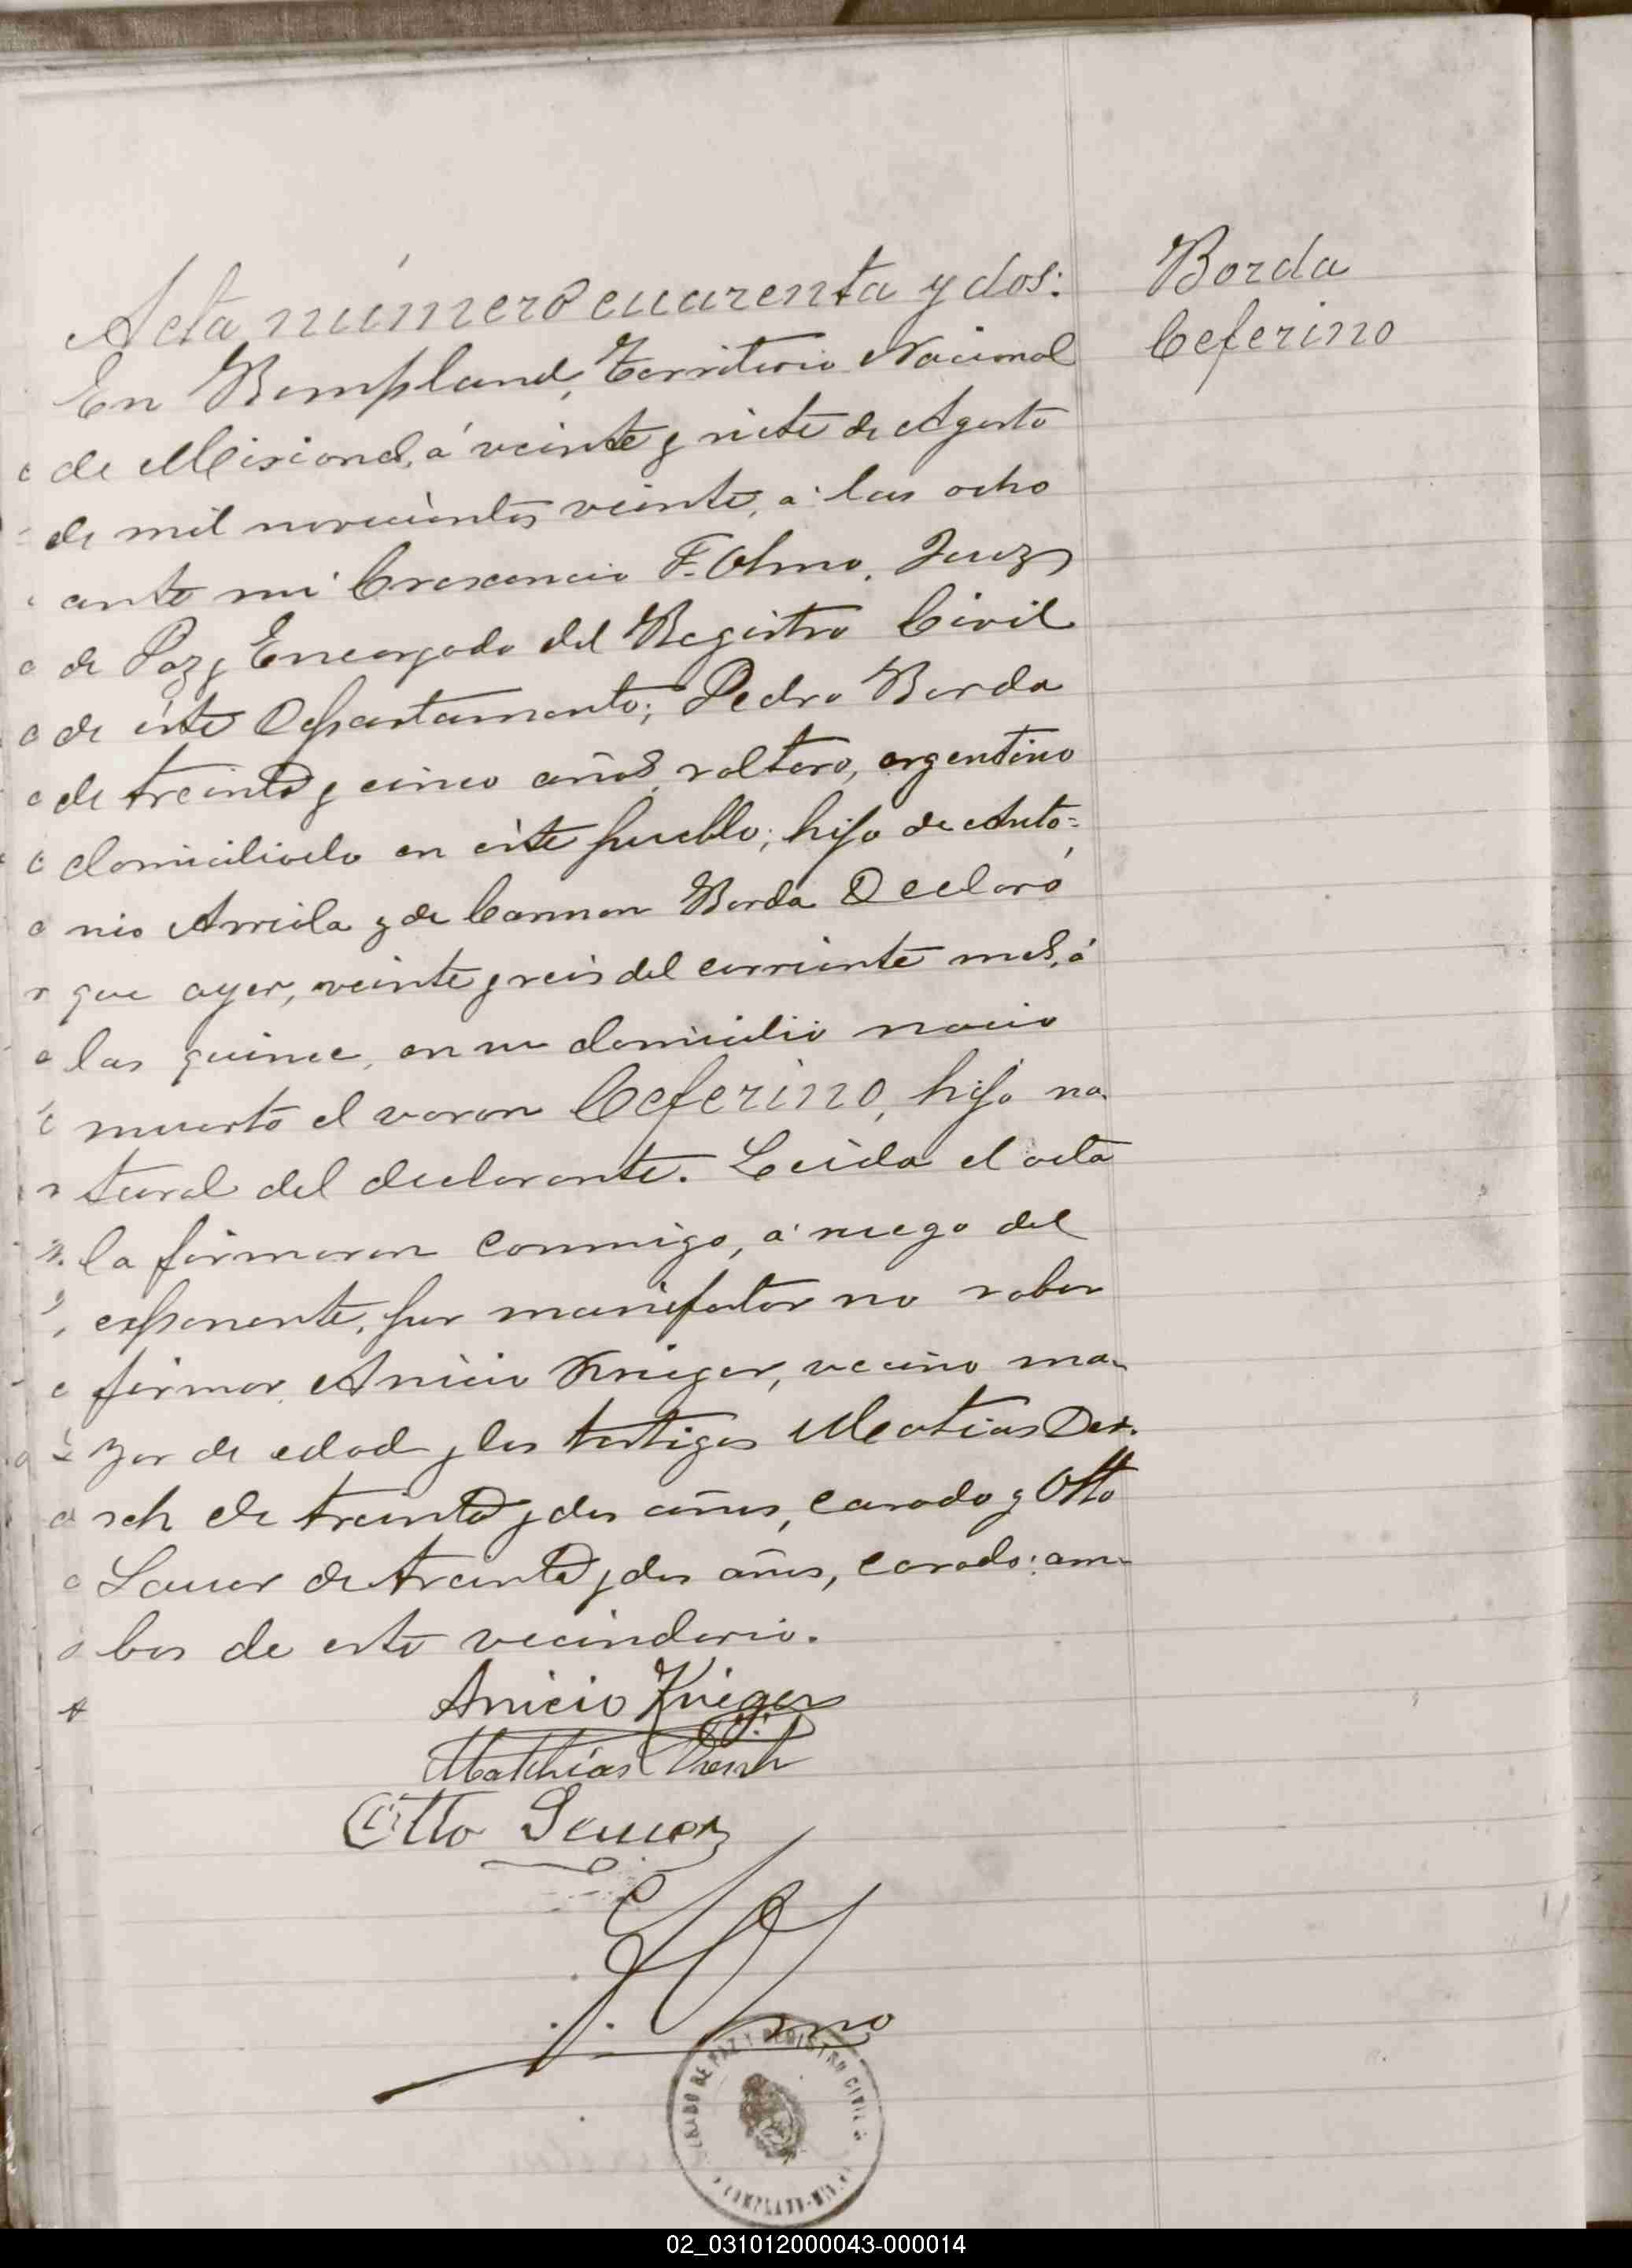 Borda
Ceferino
Acta número cuarenta y dos:
En Bompland, Territorio Nacional
de Misiones, á veinte y siete de Agosto
de mil novecientos veinte, a las ocho
ante mi Crescencio F. Olmo, Juez
de Paz y Encargado del Registro Civil
de éste Departamento; Pedro Borda
de treinta y cinco años, soltero, argentino
domiciliado en éste pueblo; hijo de Anto=
nio Arriola y de Carmen Borda Declaró
que ayer, veinte y seis del corriente mes, á
las quince, en su domicilio nacio
muerto el varon Ceferino, hijo na-
tural del declarante. Leida el acta
la firmaron conmigo, á ruego del
exponente, por manifestar no saber
firmar, Anicio Krieger, vecino ma-
yor de edad y los testigos Matias
de treinta y dos años, casado y Otto
Sauer de treinta y dos años, casado: am-
bos de este vecindario.
Anicio Krieger
Matthias
Otto Sauer
Olmo
JUZGADO DE PAZ Y REGISTRO CIVIL
BOMPLAND-MIS.
02_031012000043-000014